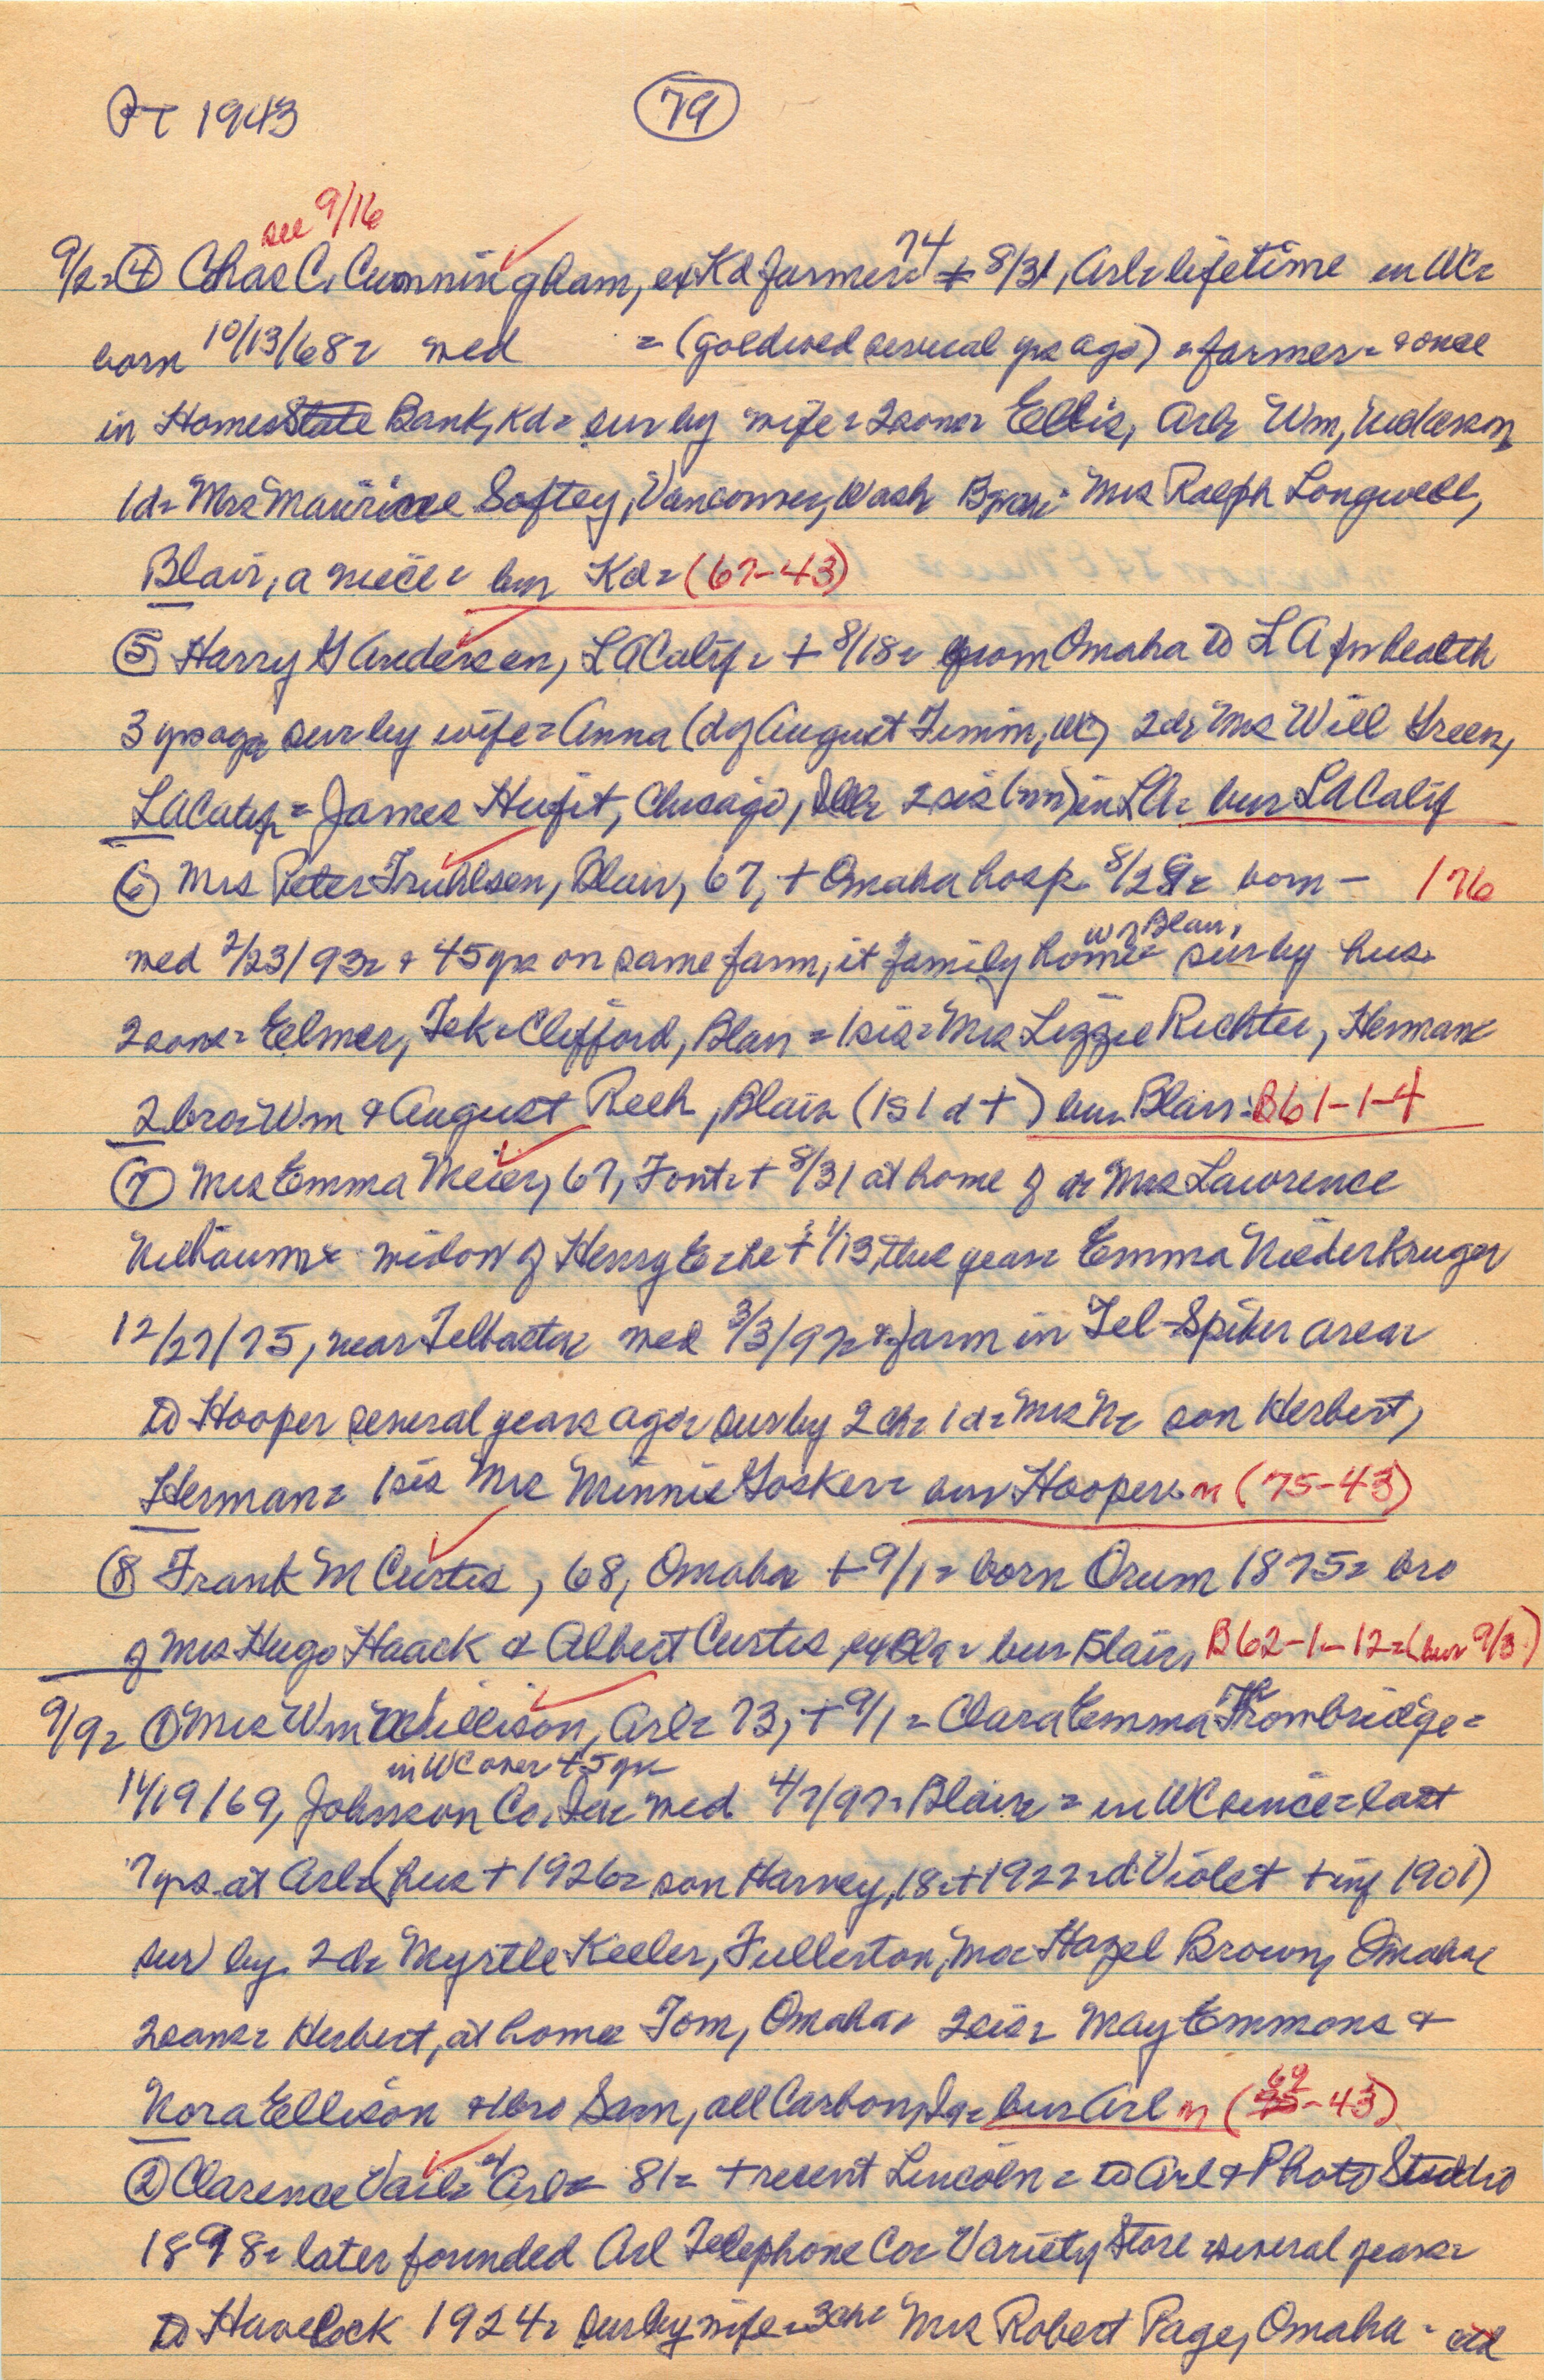 PT 1943 79
see 9/16
9/2= ④ Chas C. Cunningham, ex Kd farmer= 74 + 8/31, Arl= lifetime in WC=
born 10/13/68= med = (goldwed several yrs ago) = farmer= & once
in Home State Bank, Kd= sur by wife= 2 sons= Ellis, Arl= Wm,
1d= Mrs Maurice Softey, Vancouver, Wash Mrs Ralph Longwell,
Blair, a niece= bur Kd= (67-43)
⑤ Harry G Andersen, LA Calif= + 8/18= from Omaha to LA for health
3 yrs ago= sur by wife= Anna (d of August Timm, WC) 2d= Mrs Will Green,
LA Calif= James Hufit, Chicago, Ill= 2 sis (nn) in LA= bur LA Calif
⑥ Mrs Peter Truhlsen, Blair, 67, + Omaha hosp. 8/29= born - 176
med 2/23/93= & 45 yrs on same farm, it family home= w of Blair, sur by hus.
2 sons= Elmer, Tek= Clifford, Blair= 1 sis= Mrs Lizzie Richter, Herman=
2 bro= Wm & August Reeh, Blair= (1s 1d +) bur Blair= B61-1-4
⑦ Mrs Emma Meier, 67, Font= + 8/31 at home of d= Mrs Lawrence
widow of Henry E= he + 1/13, this year= Emma Niederkruger
12/27/75, near Telbasta= med 3/3/97= & farm in Tel-Spiker area=
to Hooper several years ago= sur by 2 ch= 1d= Mrs N= son Herbert,
Herman= 1 sis Mrs Minnie Gosker= bur Hooper= m (75-43)
⑧ Frank M Curtis, 68, Omaha + 9/1= born Orum 1875= bro
of Mrs Hugo Haack & Albert Curtis, ex Bla= bur Blair, B62-1-12= (bur 9/3)
9/9= ① Mrs Wm Willison, Arl= 73, + 9/1= Clara Emma Thrombridge=
in WC over 45 yrs
11/19/69, Johnson Co, Ia= med 4/7/97= Blair= = in WC since= last
7 yrs at Arl= (hus + 1926= son Harvey, 18= + 1922= d Violet + inf 1901)
sur by 2d= Myrtle Keeler, Fullerton, Hazel Brown, Omaha=
2 sons= Herbert, at home= Tom, Omaha= 2 sis= May Emmons &
Nora Ellison & 1 bro Sam, all Carbon, Ia= bur Arl m (69 75-43)
② Clarence Vail= ex Arl= 81= + recent Lincoln= to Arl & Photo Studio
1898= later founded Arl Telephone Co= Variety Store several years=
to Havelock 1924= sur by wife= 3 ch= Mrs Robert Page, Omaha=